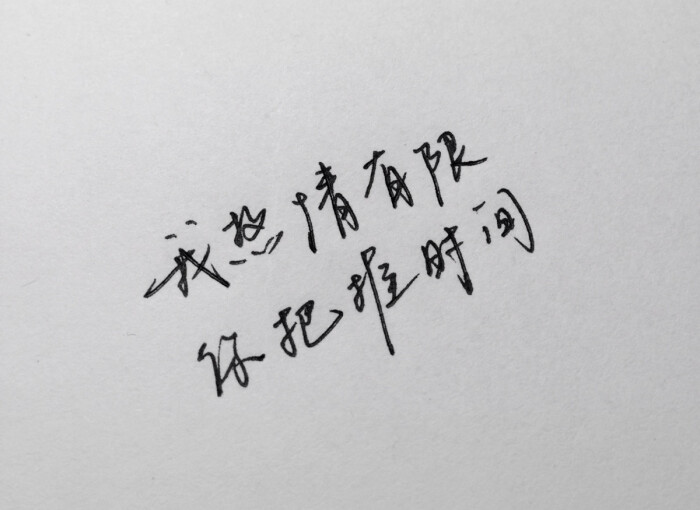 我热情有限
你把握时间